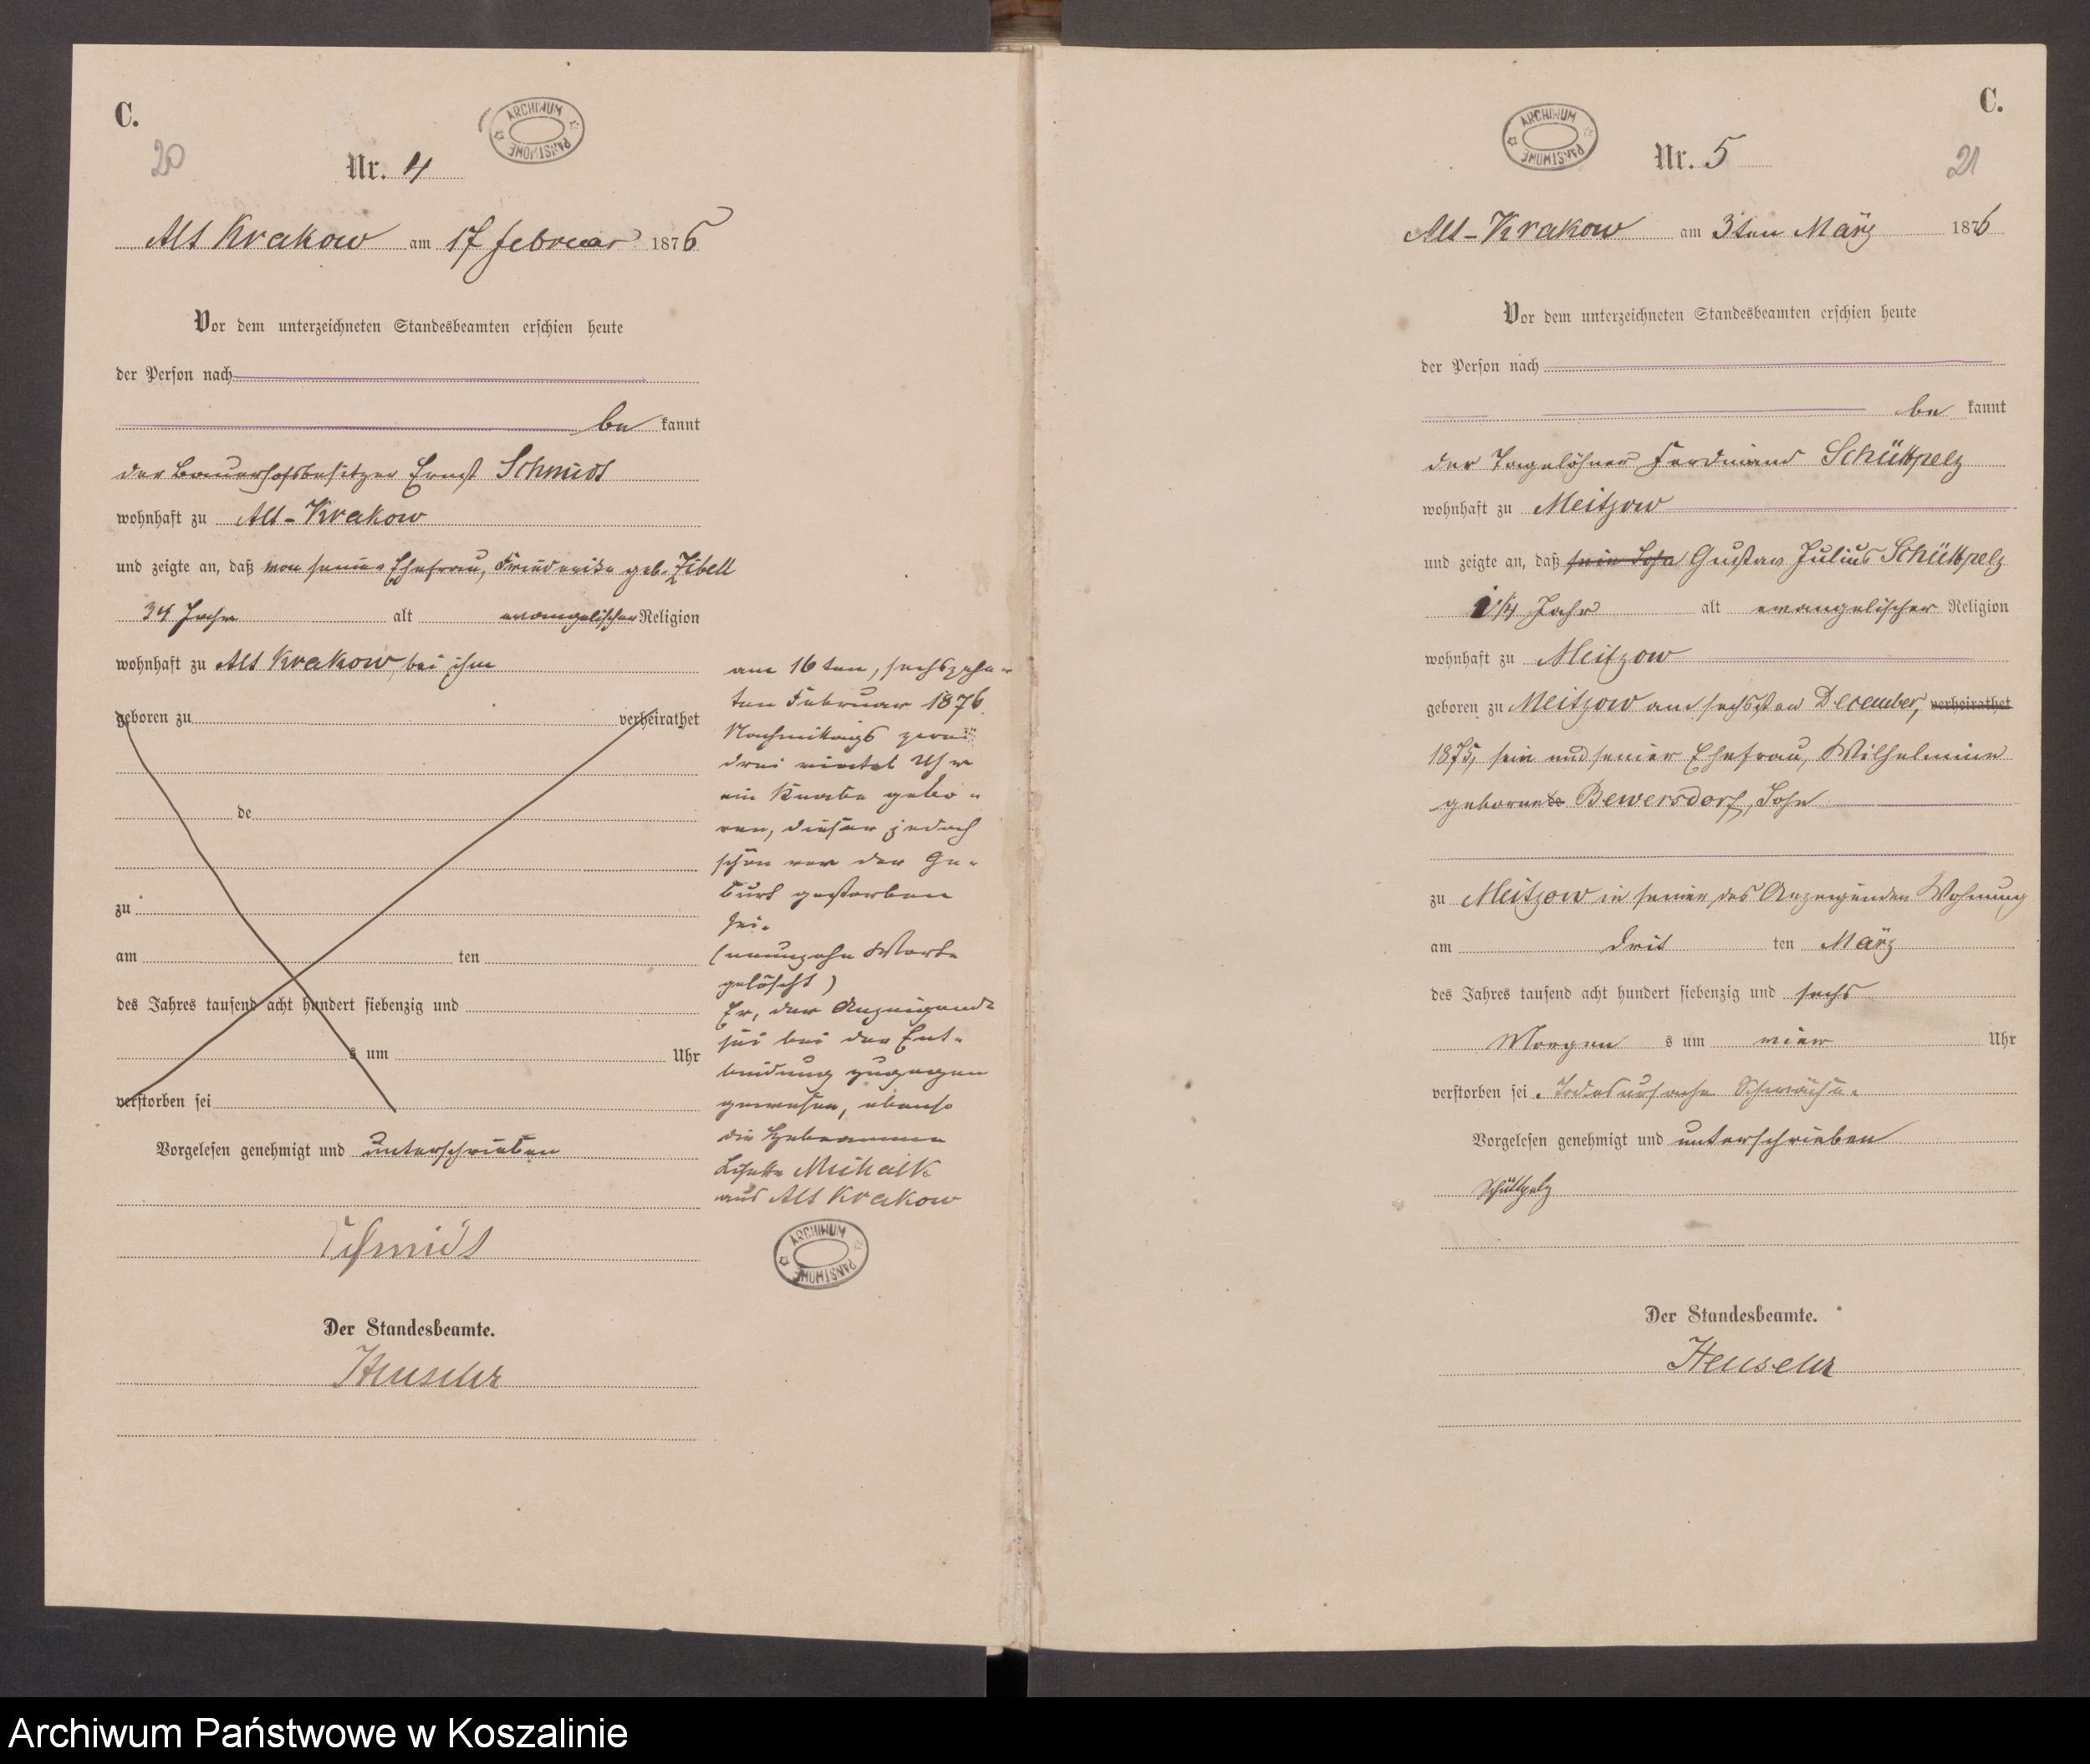 C.
ARCHIWUM PAŃSTWOWE
20
Nr. 4
Alt Krakow am 17 februar 1876
Vor dem unterzeichneten Standesbeamten erschien heute
der Person nach
be kannt
der Bauerhofsbesitzer Ernst Schmidt
wohnhaft zu Alt-Krakow
und zeigte an, daß von seiner Ehefrau, Friederike geb. Zibell
34 Jahre alt evangelischer Religion
wohnhaft zu Alt Krakow, bei ihm
geboren zu verheirathet
de
zu
am ten
des Jahres tausend acht hundert siebenzig und
s um Uhr
verstorben sei
am 16ten, sechszehn-
ten Februar 1876
Nachmittags zwei
drei viertel Uhr
ein Knabe gebo-
ren, dieser jedoch
schon vor der Ge-
burt gestorben
sei.
(neunzehn Worte
gelöscht)
Er, der Anzeigende
sei bei der Ent-
bindung zugegen
gewesen, ebenso
die Hebeamme
Lisette
aus Alt Krakow
ARCHIWUM PAŃSTWOWE
Vorgelesen genehmigt und unterschrieben
Schmidt
Der Standesbeamte.
C.
ARCHIWUM PAŃSTWOWE
21
Nr. 5
Alt-Krakow am 3ten März 1876
Vor dem unterzeichneten Standesbeamten erschien heute
der Person nach
be kannt
der Tagelöhner Ferdinand Schüttpelz
wohnhaft zu Meitzow
und zeigte an, daß sein Sohn Gustav Julius Schüttpelz
1/4 Jahr alt evangelischer Religion
wohnhaft zu Meitzow
geboren zu Meitzow am sechsten December, verheirathet
1875, sein und seiner Ehefrau, Wilhelmine
geborene Bewersdorf, Sohn
zu Meitzow in seiner, des Anzeigenden Wohnung
am drit ten März
des Jahres tausend acht hundert siebenzig und sechs
Morgen s um vier Uhr
verstorben sei. Todesursache Schwäche.
Vorgelesen genehmigt und unterschrieben
Schüttpelz
Der Standesbeamte.
Archiwum Państwowe w Koszalinie